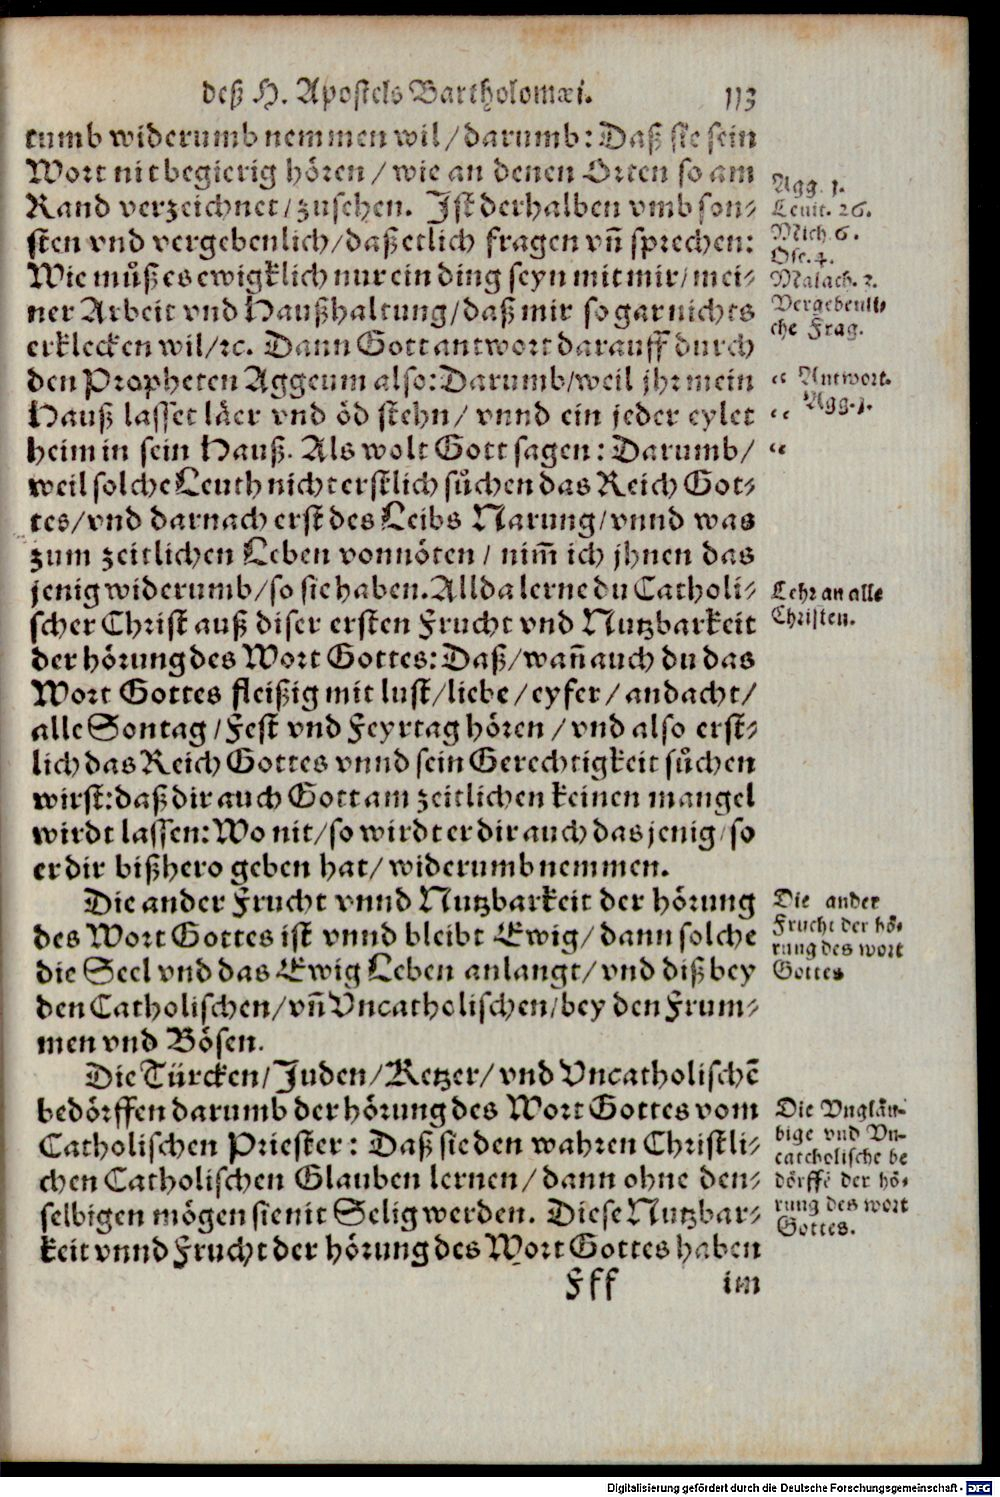 deß H. Apostels Bartholomæi. 113
tumb widerumb nemmen wil/darumb: Daß sie sein
Wort nit begierig hören/wie an denen Orten so am
Rand verzeichnet/zusehen. Ist derhalben vmb son-
sten vnd vergebenlich/daß etlich fragen vñ sprechen:
Wie můß es ewigklich nur ein ding seyn mit mir/mei-
ner Arbeit vnd Haußhaltung/daß mir so gar nichts
erklecken wil/ꝛc. Dann Gott antwort darauff durch
den Propheten Aggeum also: Darumb/weil jhr mein
Hauß lasset läer vnd öd stehn/vnnd ein jeder eylet
heim in sein Hauß. Als wolt Gott sagen: Darumb/
weil solche Leuth nicht erstlich sůchen das Reich Got-
tes/vnd darnach erst des Leibs Narung/vnnd was
zum zeitlichen Leben vonnöten/nim̃ ich jhnen das
jenig widerumb/so sie haben. Allda lerne du Catholi-
scher Christ auß diser ersten Frucht vnd Nutzbarkeit
der hörung des Wort Gottes: Daß/wañ auch du das
Wort Gottes fleißig mit lust/liebe/eyfer/andacht/
alle Sontag/Fest vnd Feyrtag hören/vnd also erst-
lich das Reich Gottes vnnd sein Gerechtigkeit sůchen
wirst: daß dir auch Gott am zeitlichen keinen mangel
wirdt lassen: Wo nit/so wirdt er dir auch das jenig/so
er dir bißhero geben hat/widerumb nemmen.
Die ander Frucht vnnd Nutzbarkeit der hörung
des Wort Gottes ist vnnd bleibt Ewig/dann solche
die Seel vnd das Ewig Leben anlangt/vnd diß bey
den Catholischen/vñ Vncatholischen/bey den Frum-
men vnd Bösen.
Die Türcken/Juden/Ketzer/vnd Vncatholischẽ
bedörffen darumb der hörung des Wort Gottes vom
Catholischen Priester: Daß sie den wahren Christli-
chen Catholischen Glauben lernen/dann ohne den-
selbigen mögen sie nit Selig werden. Diese Nutzbar-
keit vnnd Frucht der hörung des Wort Gottes haben
Fff im
Agg. 1.
Leuit. 26.
Mich. 6.
Ose. 4.
Malach. 2.
Vergebenli-
che Frag.
“ Antwort.
“ Agg. 1.
“
Lehr an alle
Christen.
Die ander
Frucht der hö-
rung des wort
Gottes
Die Vngläu-
bige vnd Vn-
catcholische be
dörffẽ der hö-
rung des wort
Gottes.
Digitalisierung gefördert durch die Deutsche Forschungsgemeinschaft - DFG